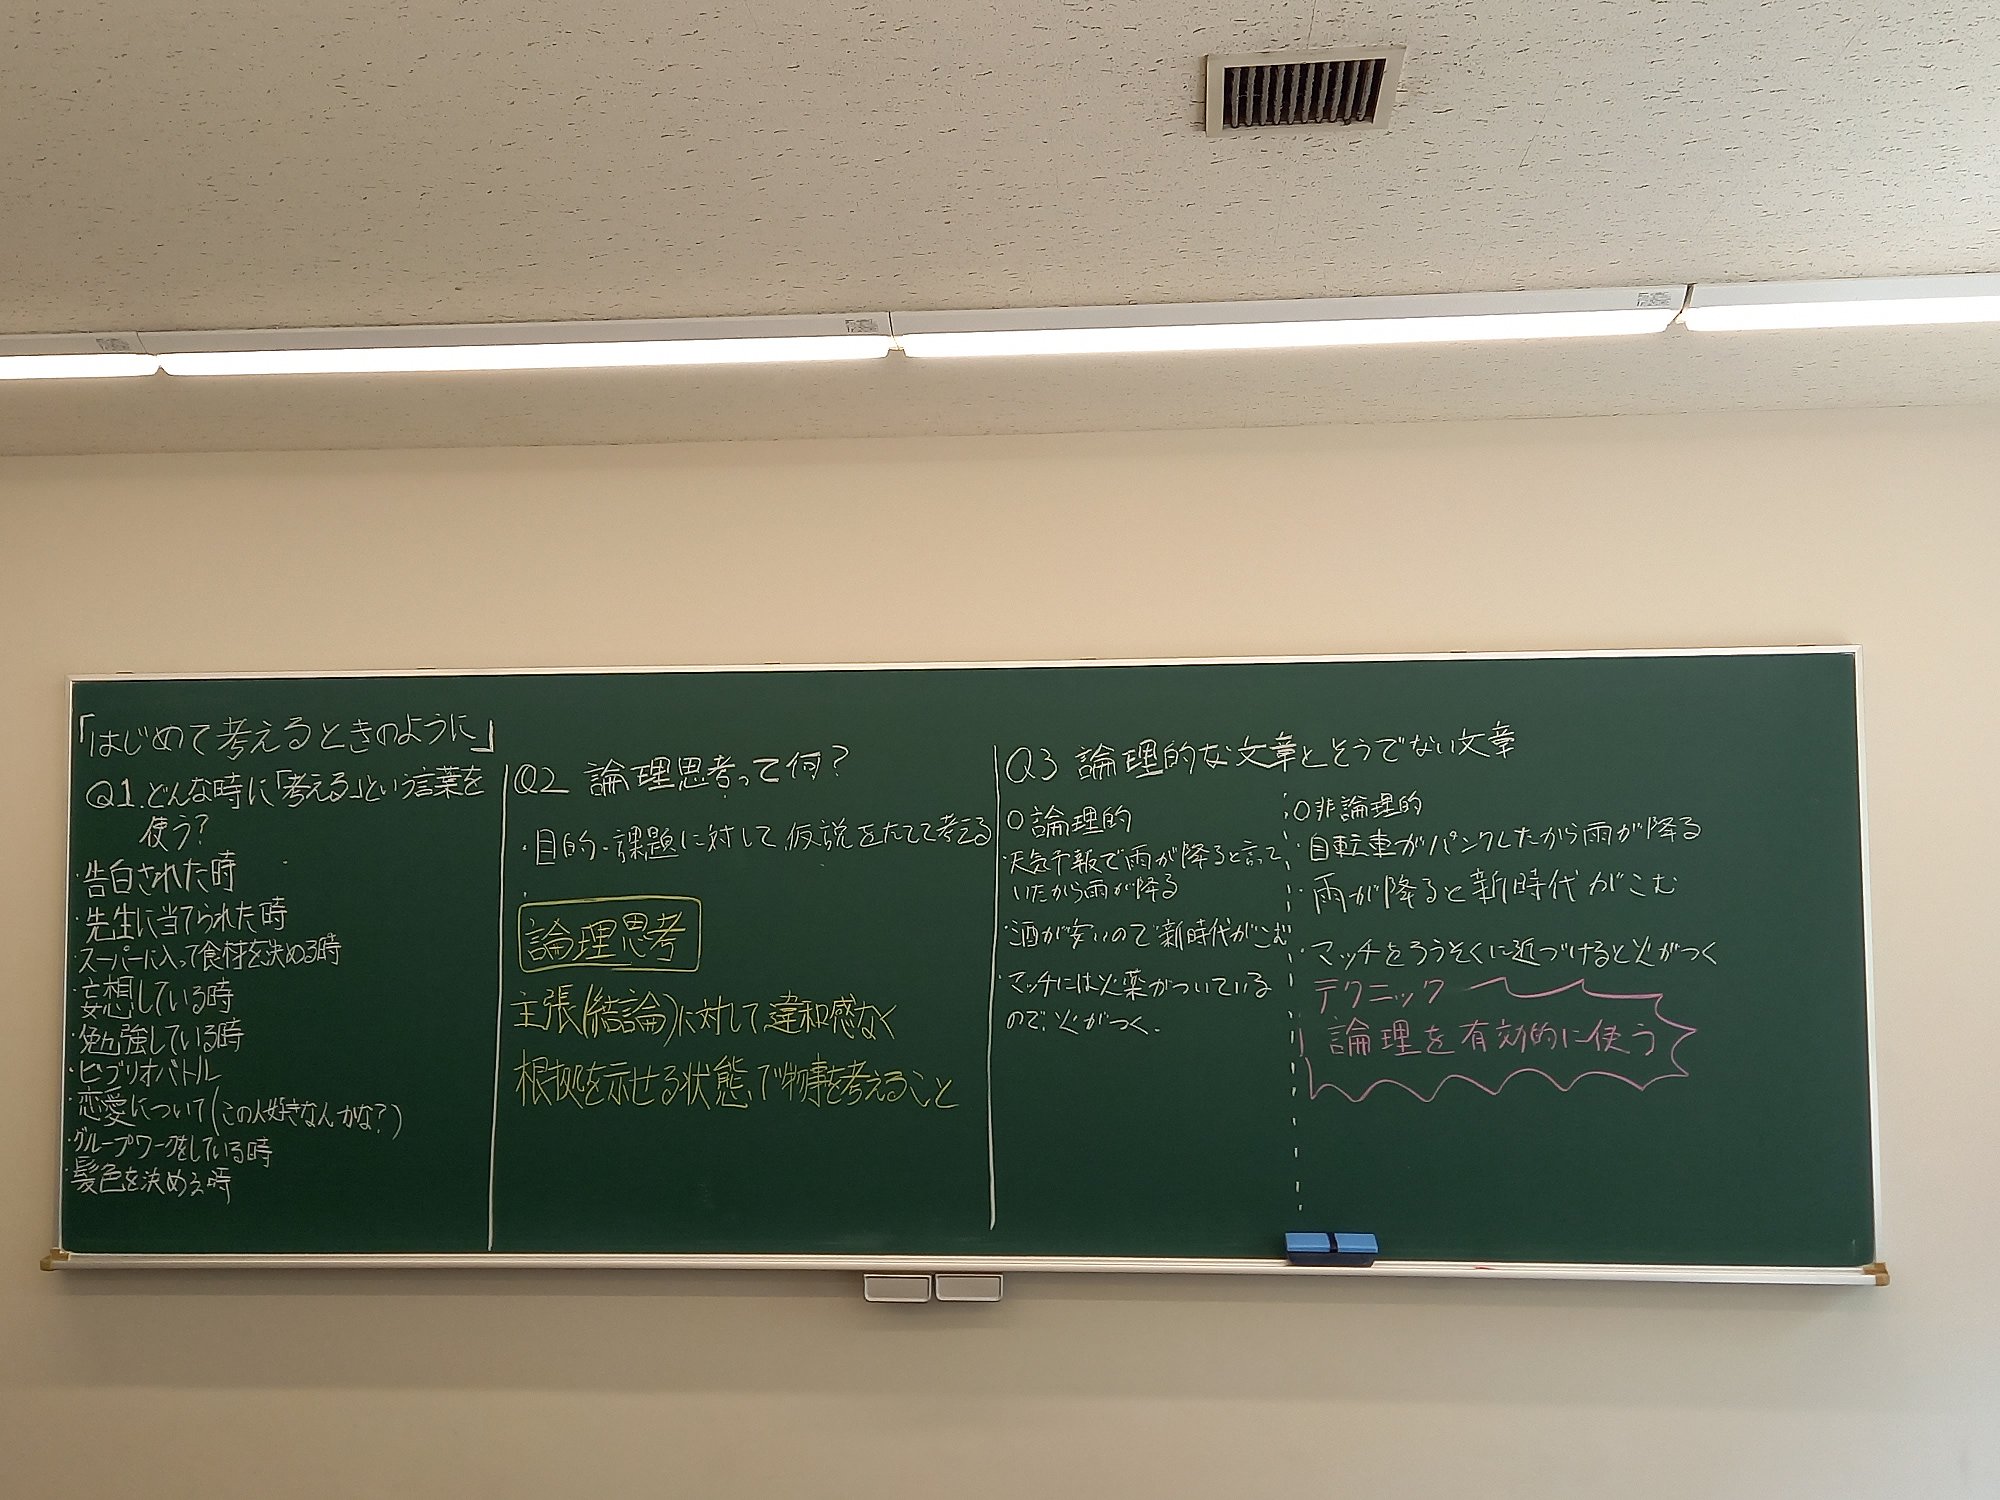 「はじめて考えるときのように」
Q1.どんな時に「考える」という言葉を
使う?
・告白された時
・先生に当てられた時
・スーパーに入って食材を決める時
・妄想している時
・勉強している時
・ビブリオバトル
・恋愛について(この人好きなんかな?)
・グループワークをしている時
・髪色を決める時
Q2 論理思考って何?
・目的・課題に対して仮説をたてて考える
論理思考
主張(結論)に対して違和感なく
根拠を示せる状態で物事を考えること
Q3 論理的な文章とそうでない文章
○論理的
・天気予報で雨が降ると言って
いたから雨が降る
・酒が安いので新時代がこむ
・マッチには火薬がついている
ので、火がつく.
○非論理的
・自転車がパンクしたから雨が降る
・雨が降ると新時代がこむ
・マッチをろうそくに近づけると火がつく
テクニック
論理を有効的に使う